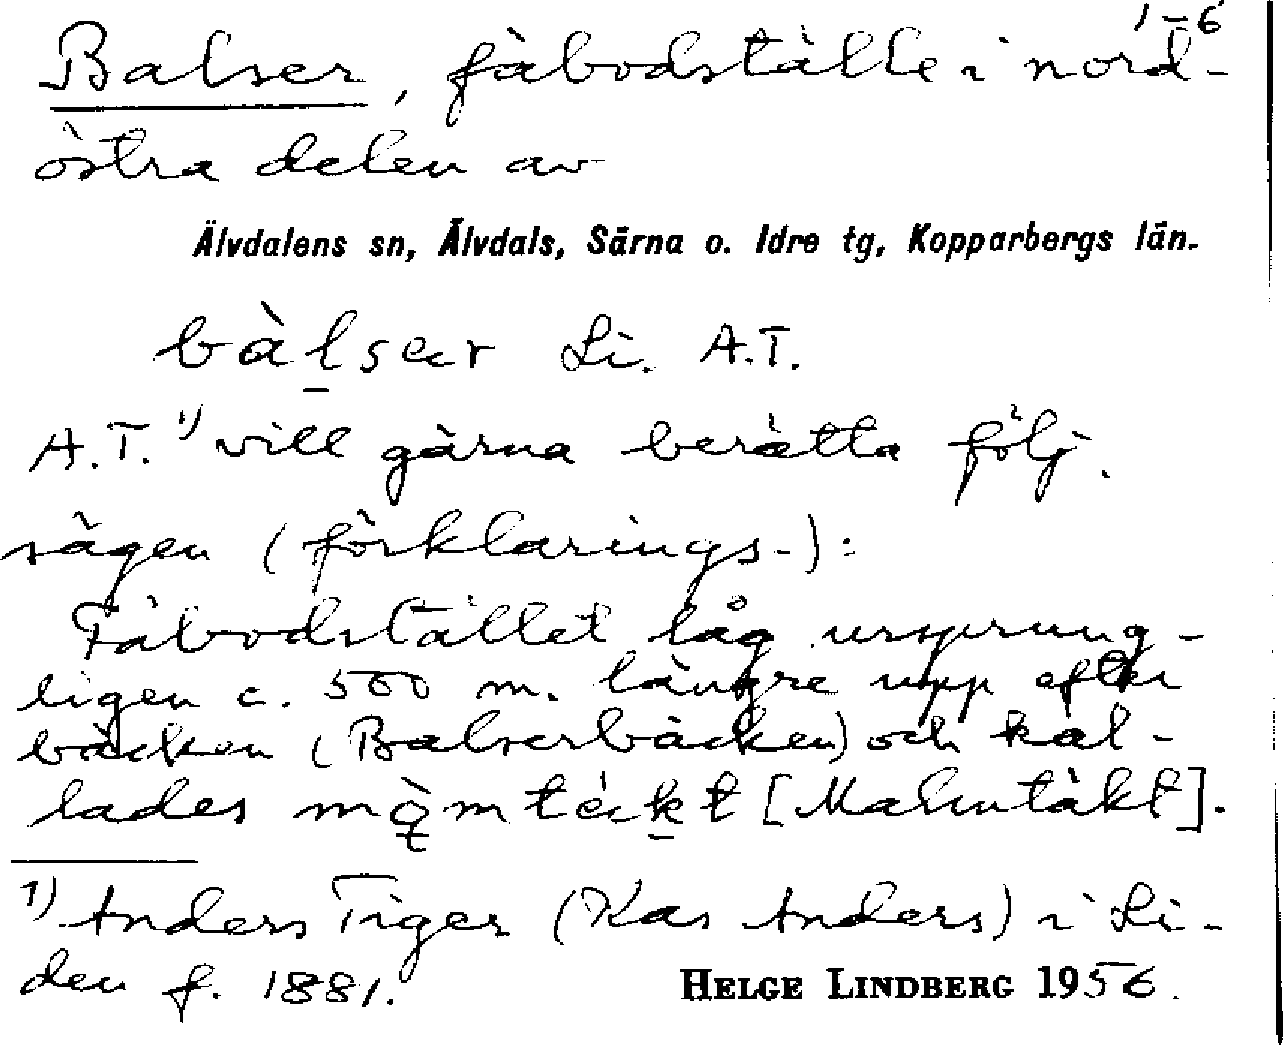 1-6
Balser, fäbodställe i nord-
östra delen av
Älvdalens sn, Älvdals, Särna o. Idre tg, Kopparbergs län.
bàlsær Li. A.T.
A.T. 1) vill gärna berätta följ.
sägen (förklarings-):
Fäbodstället låg ursprung-
ligen c. 500 m. längre upp efter
bäcken (Balserbäcken) och kal-
lades [Malmtäkt].
1) Anders Tiger (Kas Anders) i Li-
den f. 1881.
HELGE LINDBERG 1956.